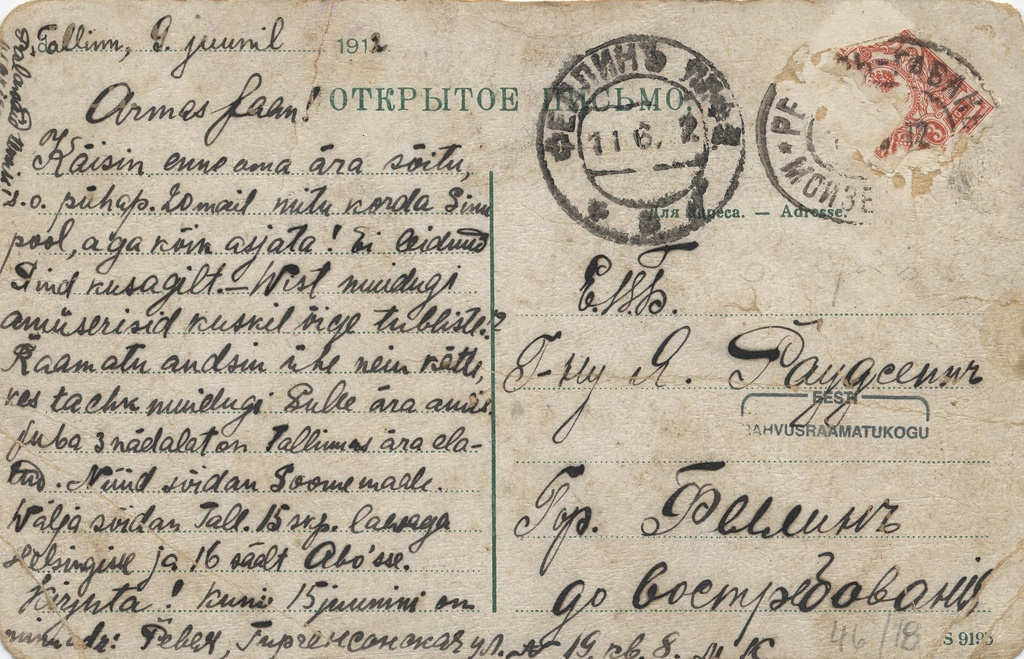 Tallinn, 9. juunil 1912
Armas Jaan!
ОТКРЫТОЕ ПИСЬМО.
Käisin enne oma ära sõitu,
s.o. pühap. 20 mail mitu korda Sinu
pool, aga kõik asjata! Ei leidnud
Sind kusagilt. — Wist muidugi
amüserisid kuskil õige tubliste.
Raamatu andsin ühe nein kätte,
kes ta muidugi Sulle ära andis.
Juba 3 nädalat on Tallinnas ära ela-
tud. Nüüd sõidan Soome maale.
Wälja sõidan Tall. 15 skp. laewaga
Helsingisse ja 16 säält Abo'sse.
Kirjuta! Kuni 15 juunini on
minu adr: Ревель, Гиргенсонская ул. № 19 кв. 8. М. К
ФЕЛЛИНЪ
11 6 12
РЕ
МОЙЗЕ
12
Для адреса. — Adresse.
Е.В.Б.
Г-ну Я. Раудсепич
EESTI
RAHVUSRAAMATUKOGU
Гор. Феллинъ
до востребованія
46/18
S 9195